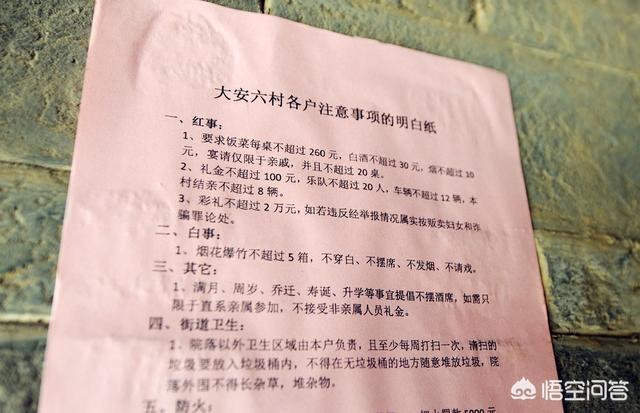 大安六村各户注意事项的明白纸
一、红事：
1、要求饭菜每桌不超过 260 元，白酒不超过 30 元，烟不超过 10
元，宴请仅限于亲戚，并且不超过 20 桌。
2、礼金不超过 100 元，乐队不超过 20 人，车辆不超过 12 辆，本
村结亲不超过 8 辆。
3、彩礼不超过 2 万元，如若违反经举报情况属实按贩卖妇女和诈
骗罪论处。
二、白事：
1、烟花爆竹不超过 5 箱，不穿白、不摆席、不发烟、不请戏。
三、其它：
1、满月、周岁、乔迁、寿诞、升学等事宜提倡不摆酒席，如需只
限于直系亲属参加，不接受非亲属人员礼金。
四、街道卫生：
1、院落以外卫生区域由本户负责，且至少每周打扫一次，清扫的
垃圾要放入垃圾桶内，不得在无垃圾桶的地方随意堆放垃圾，院
落外围不得长杂草，堆杂物。
五、防火：
5000 元
悟空问答